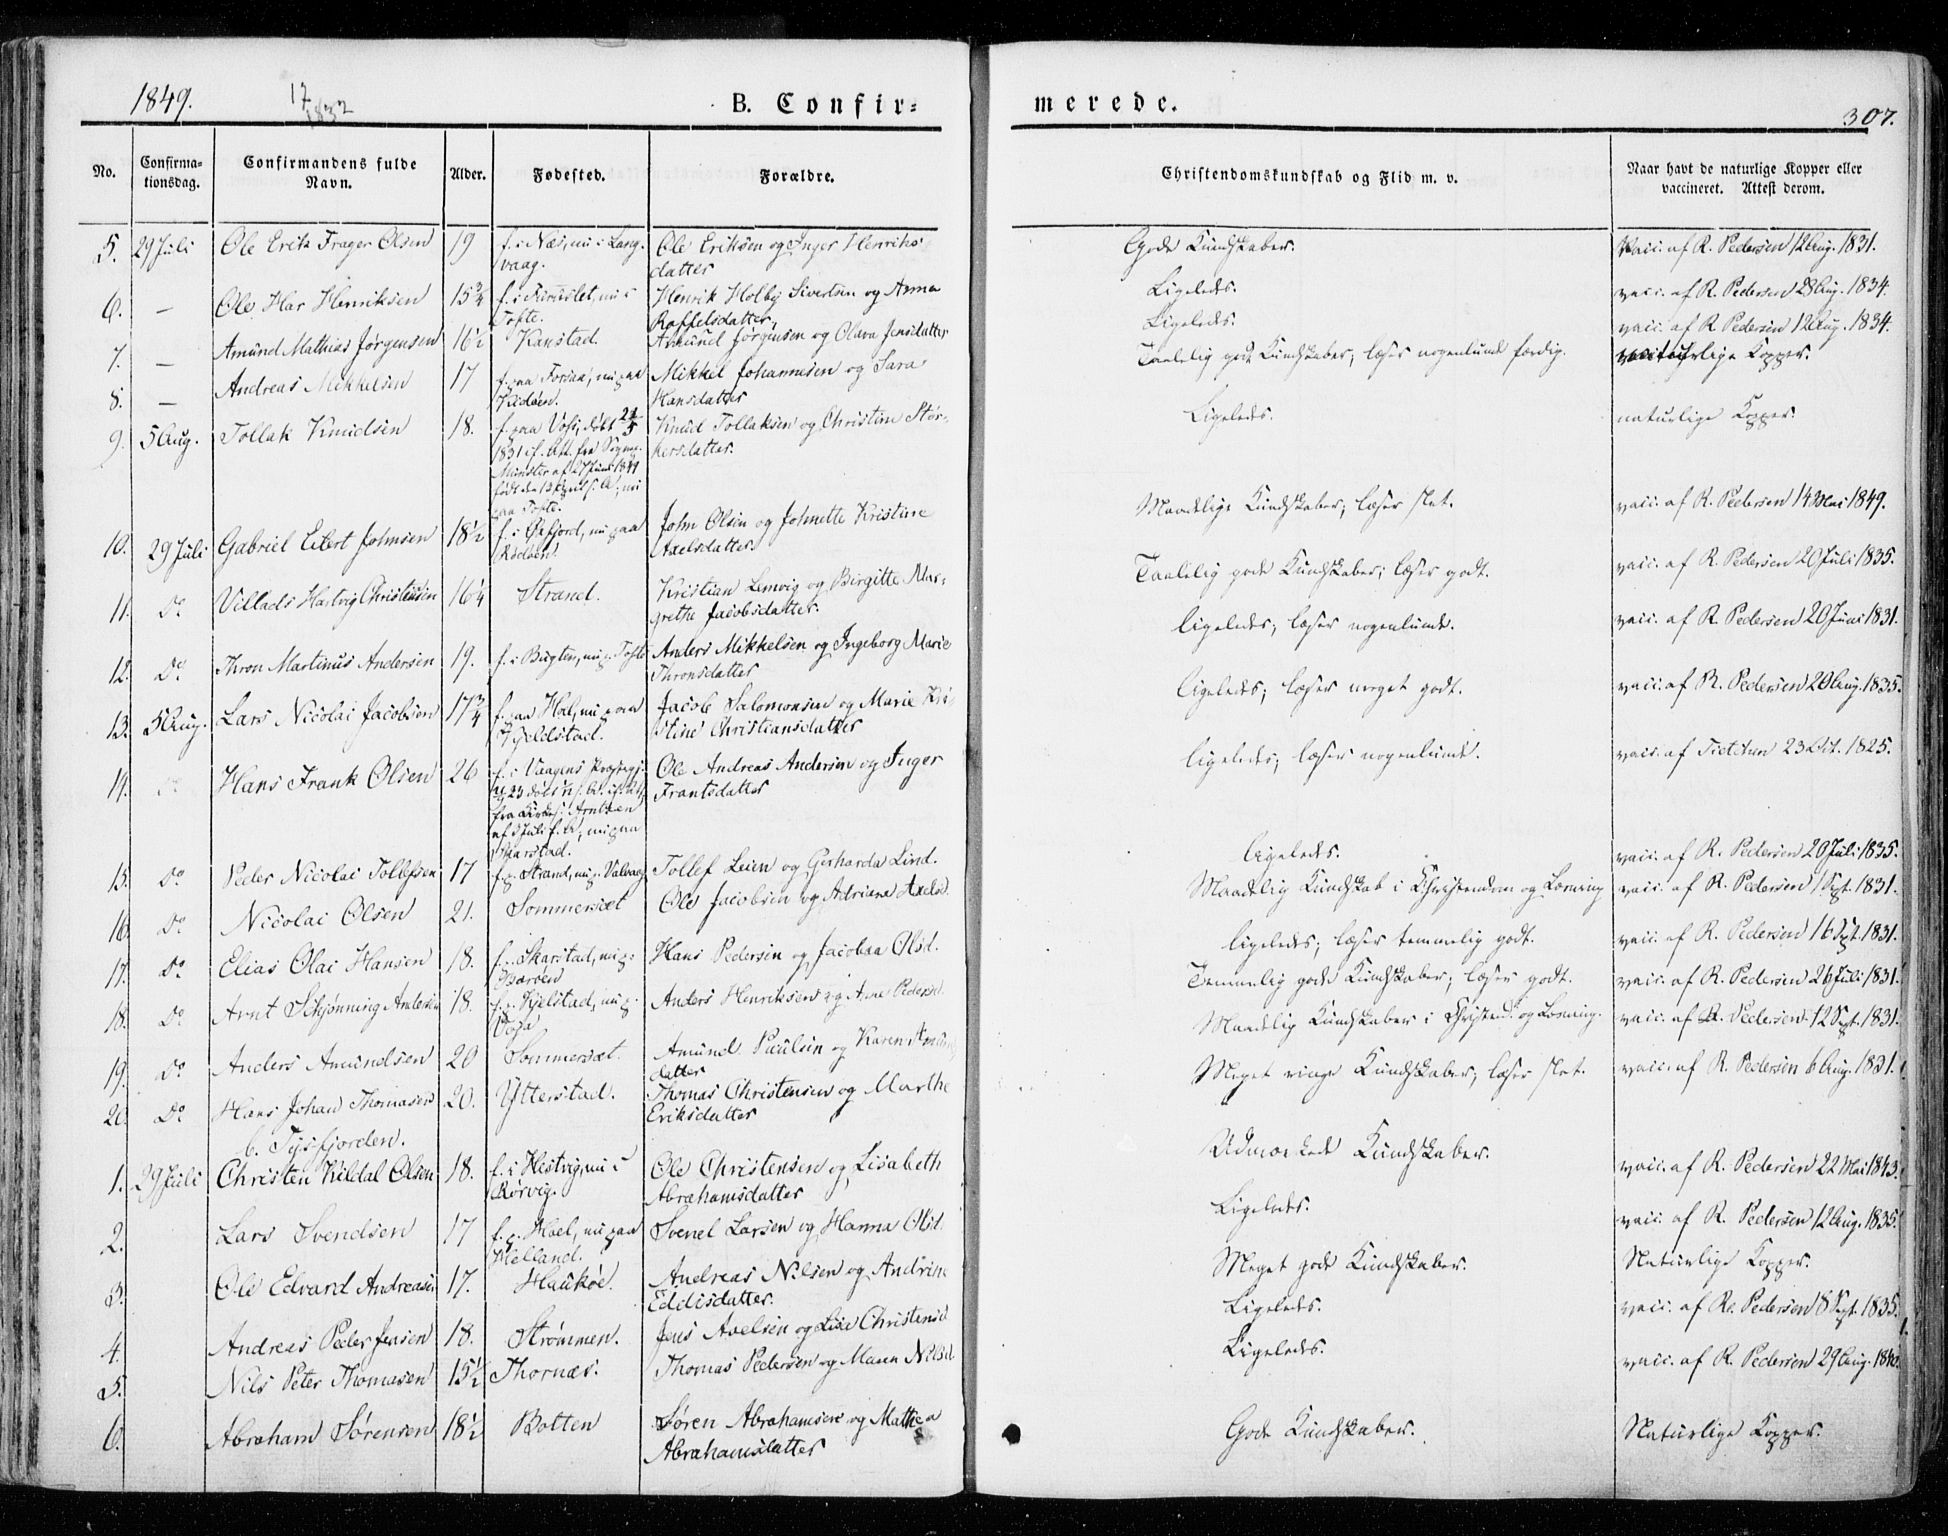 1849.
17
1832
B. Confir=
merede.
307.
No.
Confirma=
tionsdag.
Confirmandens fulde
Navn.
Alder.
Fødested.
Forældre.
Christendomskundskab og Flid m. v.
Naar havt de naturlige Kopper eller
vaccineret. Attest derom.
5. 29 Juli Ole Erik Frager Olsen 19 f. i Næs, nu i Lang- Ole Eriksen og Inger Henriks Gode Kundskaber. Vacc. af R. Pedersen 12 Aug. 1831.
vaag. datter
6. — Ole Har Henriksen 15¾ Henrik Holby Sivertsen og Anna Ligeledes. vacc. af R. Pedersen 28 Aug. 1834.
Tofte. Roffelsdatter,
7. — Amund Mathias Jørgensen 16½ Kanstad. Amund Jørgensen og Olava Jensdatter Ligeledes. vacc. af R. Pedersen 12 Aug. 1834.
8. — Andreas Mikkelsen 17 f. paa Forsaa, nu paa Mikkel Johannesen og Sara Taalelig gode Kundskaber; læser nogenlunde færdig. naturlige Kopper.
Hansdatter
9. 5 Aug. Tollak Knudsen 18. f. paa Vos, døbt Knud Tollaksen og Christine Stør- Ligeledes. naturlige Kopper.
1831 kersdatter.
født den 13 April
paa Tofte.
10. 29 Juli Gabriel Eilert Johnsen 18½ f. i Øxfjord, nu paa John Olsen og Johnette Kristine Maadelige Kundskaber; læser slet. vacc. af R. Pedersen 14 Mai 1849.
Rødøen. Axelsdatter.
11. Do Villads Hartvig Christensen 16¼ Strand. Kristian Lemvig og Birgitte Mar- Taalelig gode Kundskaber; læser godt. vacc. af R. Pedersen 20 Juli 1835.
grethe Jacobsdatter.
12. Do Thron Martinus Andersen 19. f. i Bugten, nu p. Tofte Anders Mikkelsen og Ingeborg Marie ligeledes; læser nogenlunde. vacc. af R. Pedersen 20 Juni 1831.
Thronsdatter
13. 5 Aug. Lars Nicolai Jacobsen 17¾ f. paa Hol, nu paa Jacob Salomonsen og Marie Kri- ligeledes; læser meget godt. vacc. af R. Pedersen 20 Aug. 1835.
Kjeldstad. stine Christiansdatter
14. Do Hans Frank Olsen 26 f. i Vaagens Præstegj. Ole Andreas Andersen og Inger ligeledes; læser nogenlunde. vacc. af Tietchen 23 Oct. 1825.
Frantsdatter
af 3 Juli f. A, nu paa
Skarstad.
15. Do Peder Nicolai Tollefsen 17 f. p. Strand, nu p. Valvaag Tollef Leien og Gerharda Lind. ligeledes. vacc. af R. Pedersen 20 Juli 1835.
16. Do Nicolai Olsen 21. Sommersæt Ole Jacobsen og Adriana Axelsd. Maadelig Kundskab i Christendom og Læsning vacc. af R. Pedersen 1 Sept. 1831.
17. Do Elias Olai Hansen 18. f. i Skarstad, nu p. Hans Pedersen og Jacobaa Olsd. ligeledes; læser temmelig godt. vacc. af R. Pedersen 16 Sept. 1831.
Barøen
18. Do Arnt Schjønning Andersen 18. f. p. Kjelstad, nu p. Anders Henriksen og Ane Pedersd. Temmelig gode Kundskaber; læser godt. vacc. af R. Pedersen 26 Juli 1831.
19. Do Anders Amundsen 20 Sommersæt. Amund Paulsen og Karen Amunds Maadelig Kundskaber i Christend. og Læsning. vacc. af R. Pedersen 12 Sept. 1831.
datter
20. Do Hans Johan Thomasen 20. Ytterstad. Thomas Christensen og Marthe Meget ringe Kundskaber; læser slet. vacc. af R. Pedersen 6 Aug. 1831.
Eriksdatter
b. Tysfjorden.
1. 29 Juli Christen Kildal Olsen 18. f. i Hestvig, nu i Ole Christensen og Lisabeth Udmærkede Kundskaber. vacc. af R. Pedersen 22 Mai 1843.
Rørvig. Abrahamsdatter
2. Lars Svendsen 17 f. p. Hoel, nu paa Svend Larsen og Hanna Olsd. Ligeledes. vacc. af R. Pedersen 12 Aug. 1835.
Helland.
3. Ole Edvard Andreasen 17. Haukøe. Andreas Nilsen og Andrine Meget gode Kundskaber. Naturlige Kopper.
Eddisdatter.
4. Andreas Peder Jensen 18. Strømmen. Jens Axelsen og Lise Christensd Ligeledes. vacc. af R. Pedersen 8 Sept. 1835.
5. Nils Peter Thomasen 15½ Thornæs. Thomas Pedersen og Maren Nilsd. Ligeledes. vacc. af R. Pedersen 29 Aug. 1840.
6. Abraham Sørensen 18½ Botten Søren Abrahamsen og Mathea Gode Kundskaber. Naturlige Kopper.
Abrahamsdatter